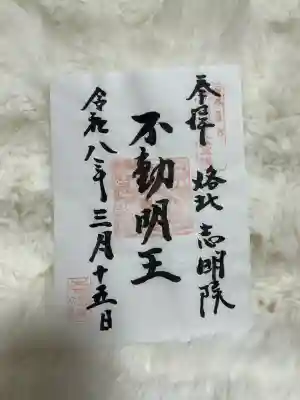 奉拝
洛北 志明院
不動明王
令和八年三月十五日